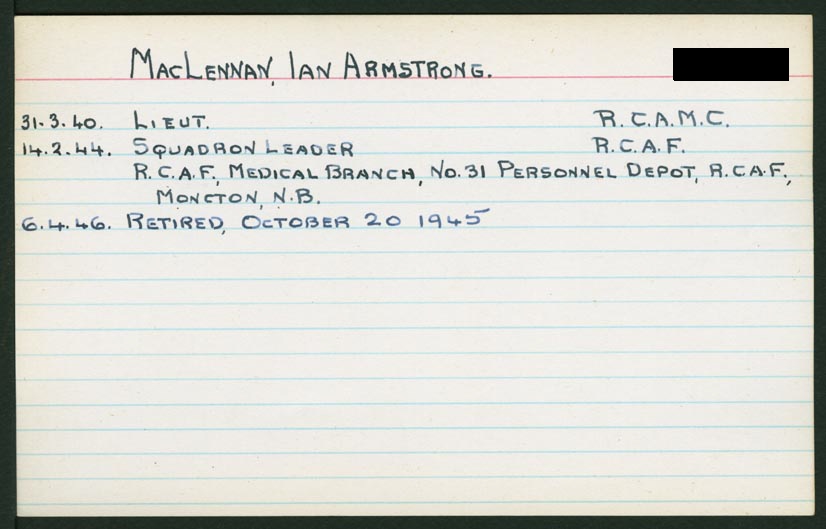 MacLennan, Ian Armstrong.
31.3.40. Lieut. R.C.A.M.C.
14.2.44. Squadron Leader R.C.A.F.
R.C.A.F. Medical Branch, No. 31 Personnel Depot, R.C.A.F.,
Moncton, N.B.
6.4.46. Retired, October 20 1945